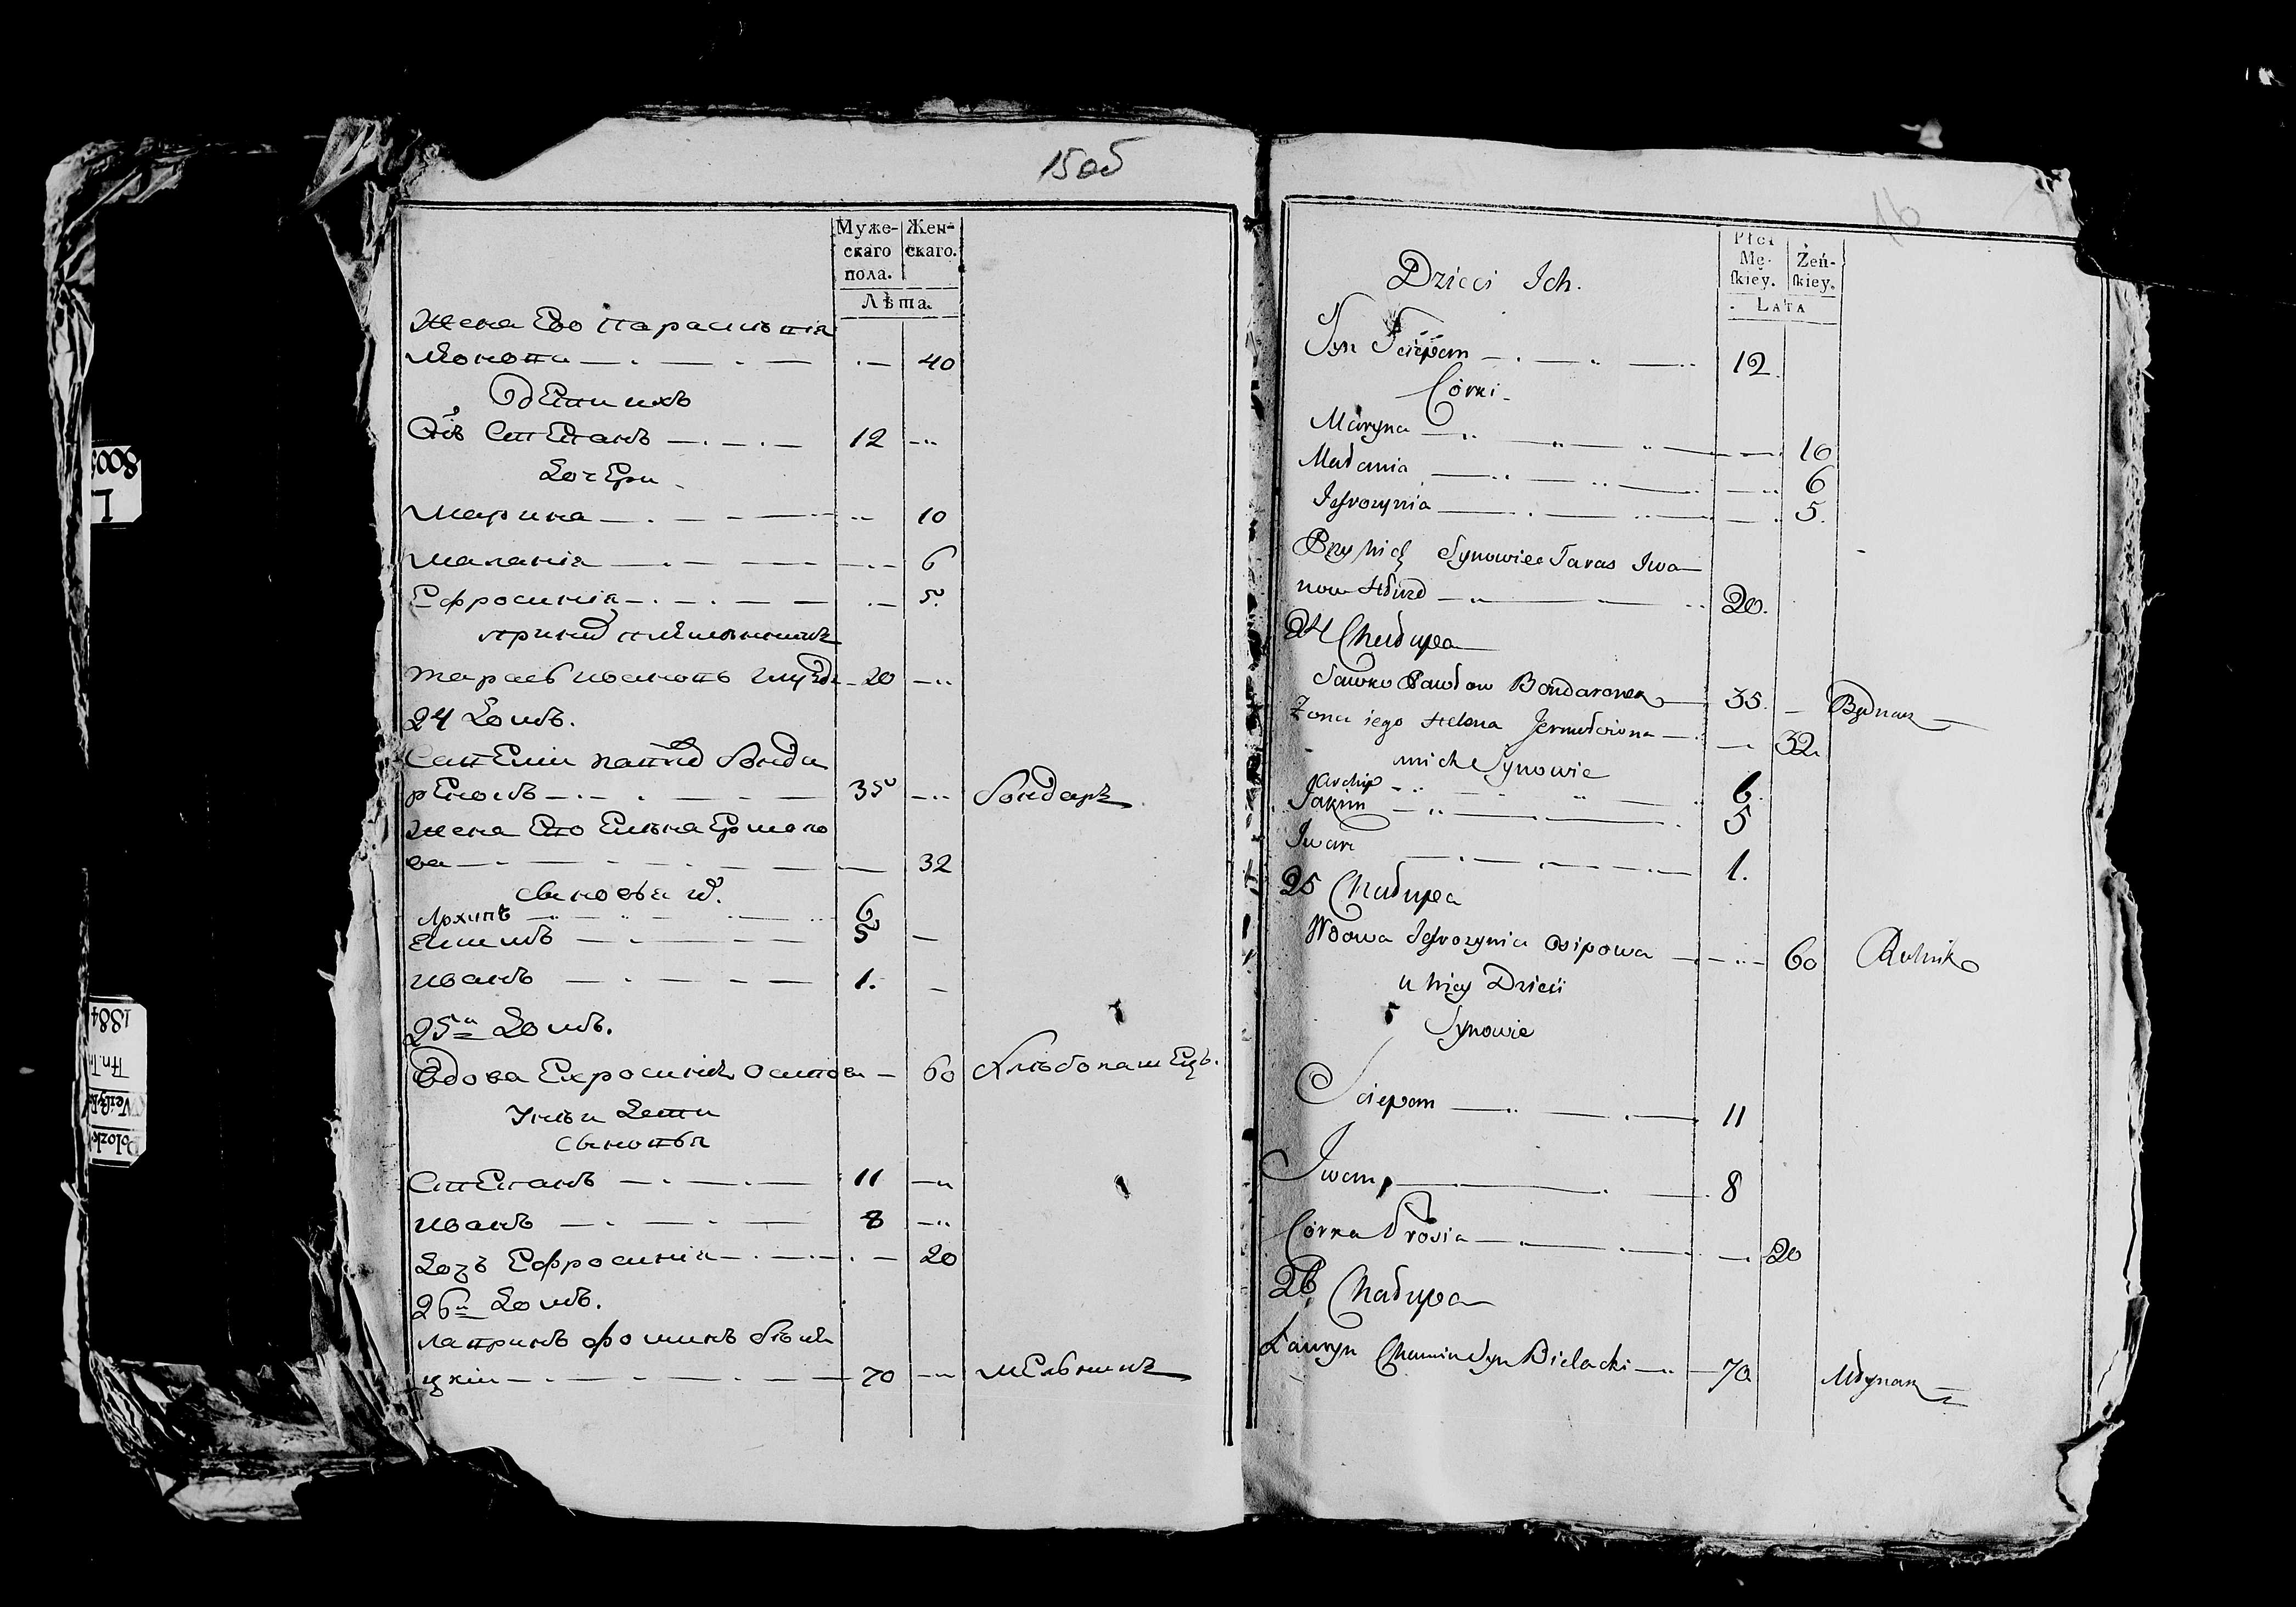 15 об
Муже-
скаго
пола.
Жен-
скаго.
Лѣта
Жена Его Параскѣвія
40
Дѣти ихъ
Сн҃ъ Степанъ 12
Дочери
Марина 10
Маланія 6
Ефросинія 5.
при нихъ племянникъ
Тарасъ Ивановъ 20
24 Домъ.
35 бондарь
Жена Его Елена Ермоло
ва 32
Сыновья
Архипъ 6
Екимъ 5
Иванъ 1.
25й Домъ.
Вдова Ефросинія Осипова 60 Хлѣбопашецъ.
У нѣи Дети
Сыновья
Степанъ 11
Иванъ 8
Дочь Ефросинія 20
26й Домъ.
Лавринъ Фоминъ Бѣля
цкій 70 Мельникъ
16
Płci
Mę-
skiey.
Żeń-
skiey.
LATA
Dzieci Ich.
Syn Sciepan 12.
Córki
Maryna 10
Małania 6
Jefrozynia 5.
Przy nich Synowiec Taras Iwa
now 20.
24 Chałupa
Sawko Pawłow Bondaronek 35. Bednarz
Żona iego Helena Jermołowna 32
u nich Synowie
Archip 6.
Jakim 5
Iwan 1.
25 Chałupa
Wdowa Jefrozynia Osipowa 60 Rolnik
u niey Dzieci
Synowie
Sciepan 11
Iwan 8
Córka Prosia 20
26 Chałupa
Ławryn Chamin Syn Bielacki 70 Młynarz